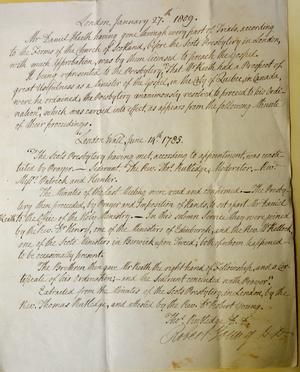 London, January 27.th 1809.
Mr. Daniel Keith having gone through every part of Trials, according
to the Forms of the Church of Scotland, before the Scots Presbytery in London,
with much Approbation, was by them licensed to preach the Gospel.
It being represented to the Presbytery, "That Mr. Keith had a Prospect of
great Usefulness as a Minister of the Gospel, in the City of Quebec, in Canada,
were he ordained, the Presbytery unanimously resolved to proceed to his Ordi-
nation", which was carried into effect, as appears from the following Minute
of their proceedings.
London Wall, June 14.th 1785.
"The Scots Presbytery having met, according to appointment, was consti-
tuted by Prayer. Sederunt The Rev. Thos. Rutledge, Moderator, Rev.
and Hunter.
The Minutes of the last Meeting were read and confirmed. The Presby-
tery then proceeded, by Prayer and Imposition of Hands, to set apart Mr. Daniel
Keith to the Office of the Holy Ministry. In this solemn Service they were joined
by the Rev. Dr. Henry, one of the Ministers of Edinburgh, and the Rev.
one of the Scots Ministers in Berwick upon Tweed, both of whom happened
to be occasionally present.
The Brethren then gave Mr. Keith the right hand of Fellowship, and a Cer-
tificate of his Ordination; and the Sederunt concluded with Prayer."
Extracted from the Minutes of the Scots Presbytery in London, by the
Rev. Thomas Rutledge, and attested by the Rev. Dr. Robert Young.
Thos. Rutledge
Robert Young